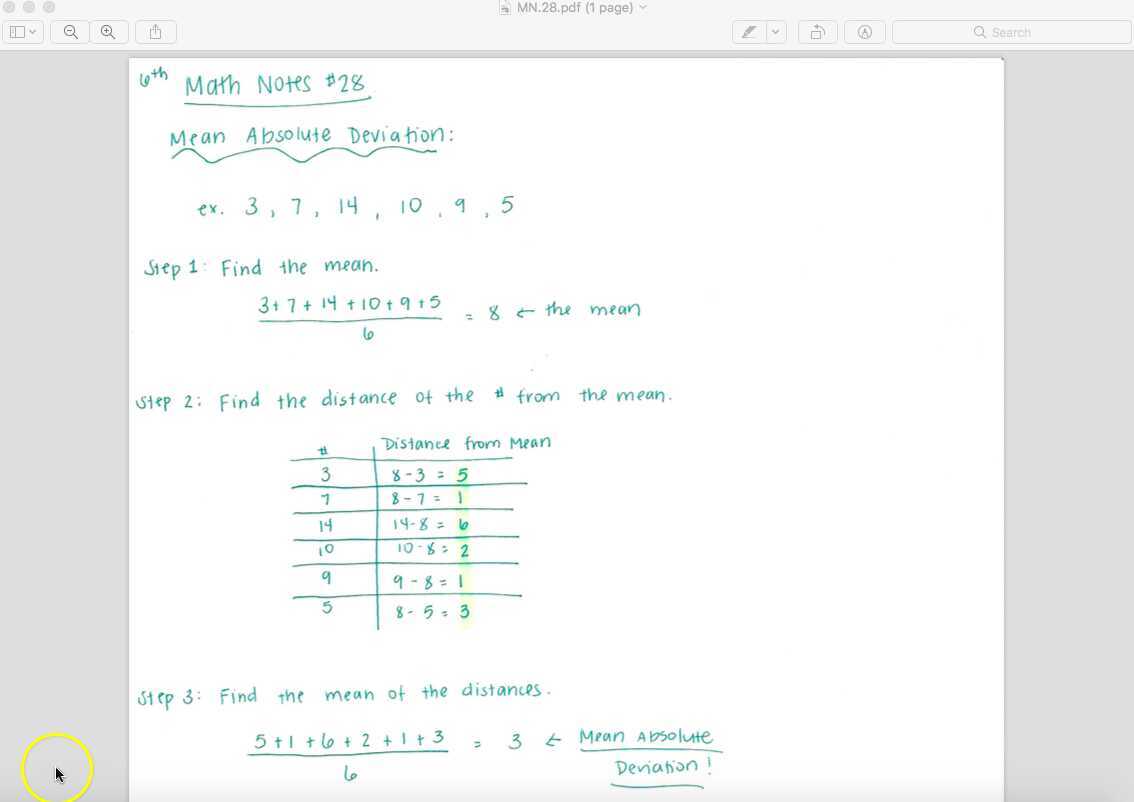 MN.28.pdf (1 page)
Search
6th Math Notes #28
Mean Absolute Deviation:
ex. 3, 7, 14, 10, 9, 5
Step 1: Find the mean.
3+7+14+10+9+5
= 8 ← the mean
6
Step 2: Find the distance of the # from the mean.
# Distance from Mean
3 8-3 = 5
7 8-7 = 1
14 14-8 = 6
10 10-8 = 2
9 9-8 = 1
5 8-5 = 3
Step 3: Find the mean of the distances.
5+1+6+2+1+3 = 3 ← Mean Absolute
6 Deviation!